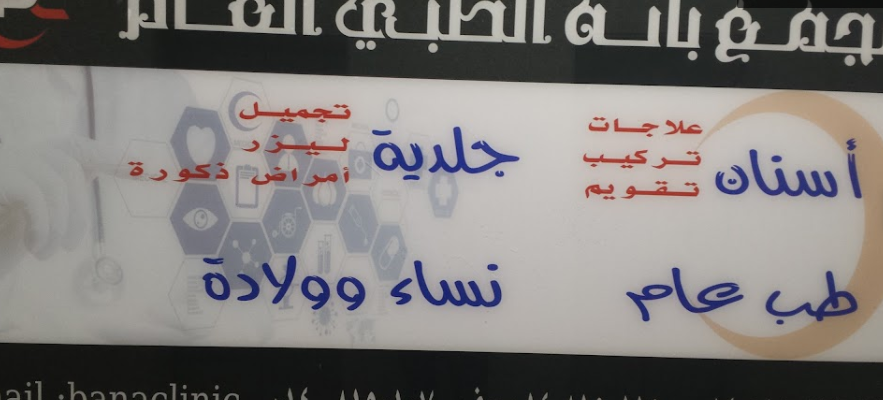 مجمع بانه الطبي العام
أسنان
علاجات
تركيب
تقويم
جلدية
تجميل
ليزر
أمراض ذكورة
طب عام
نساء وولادة
ail :banaclinic